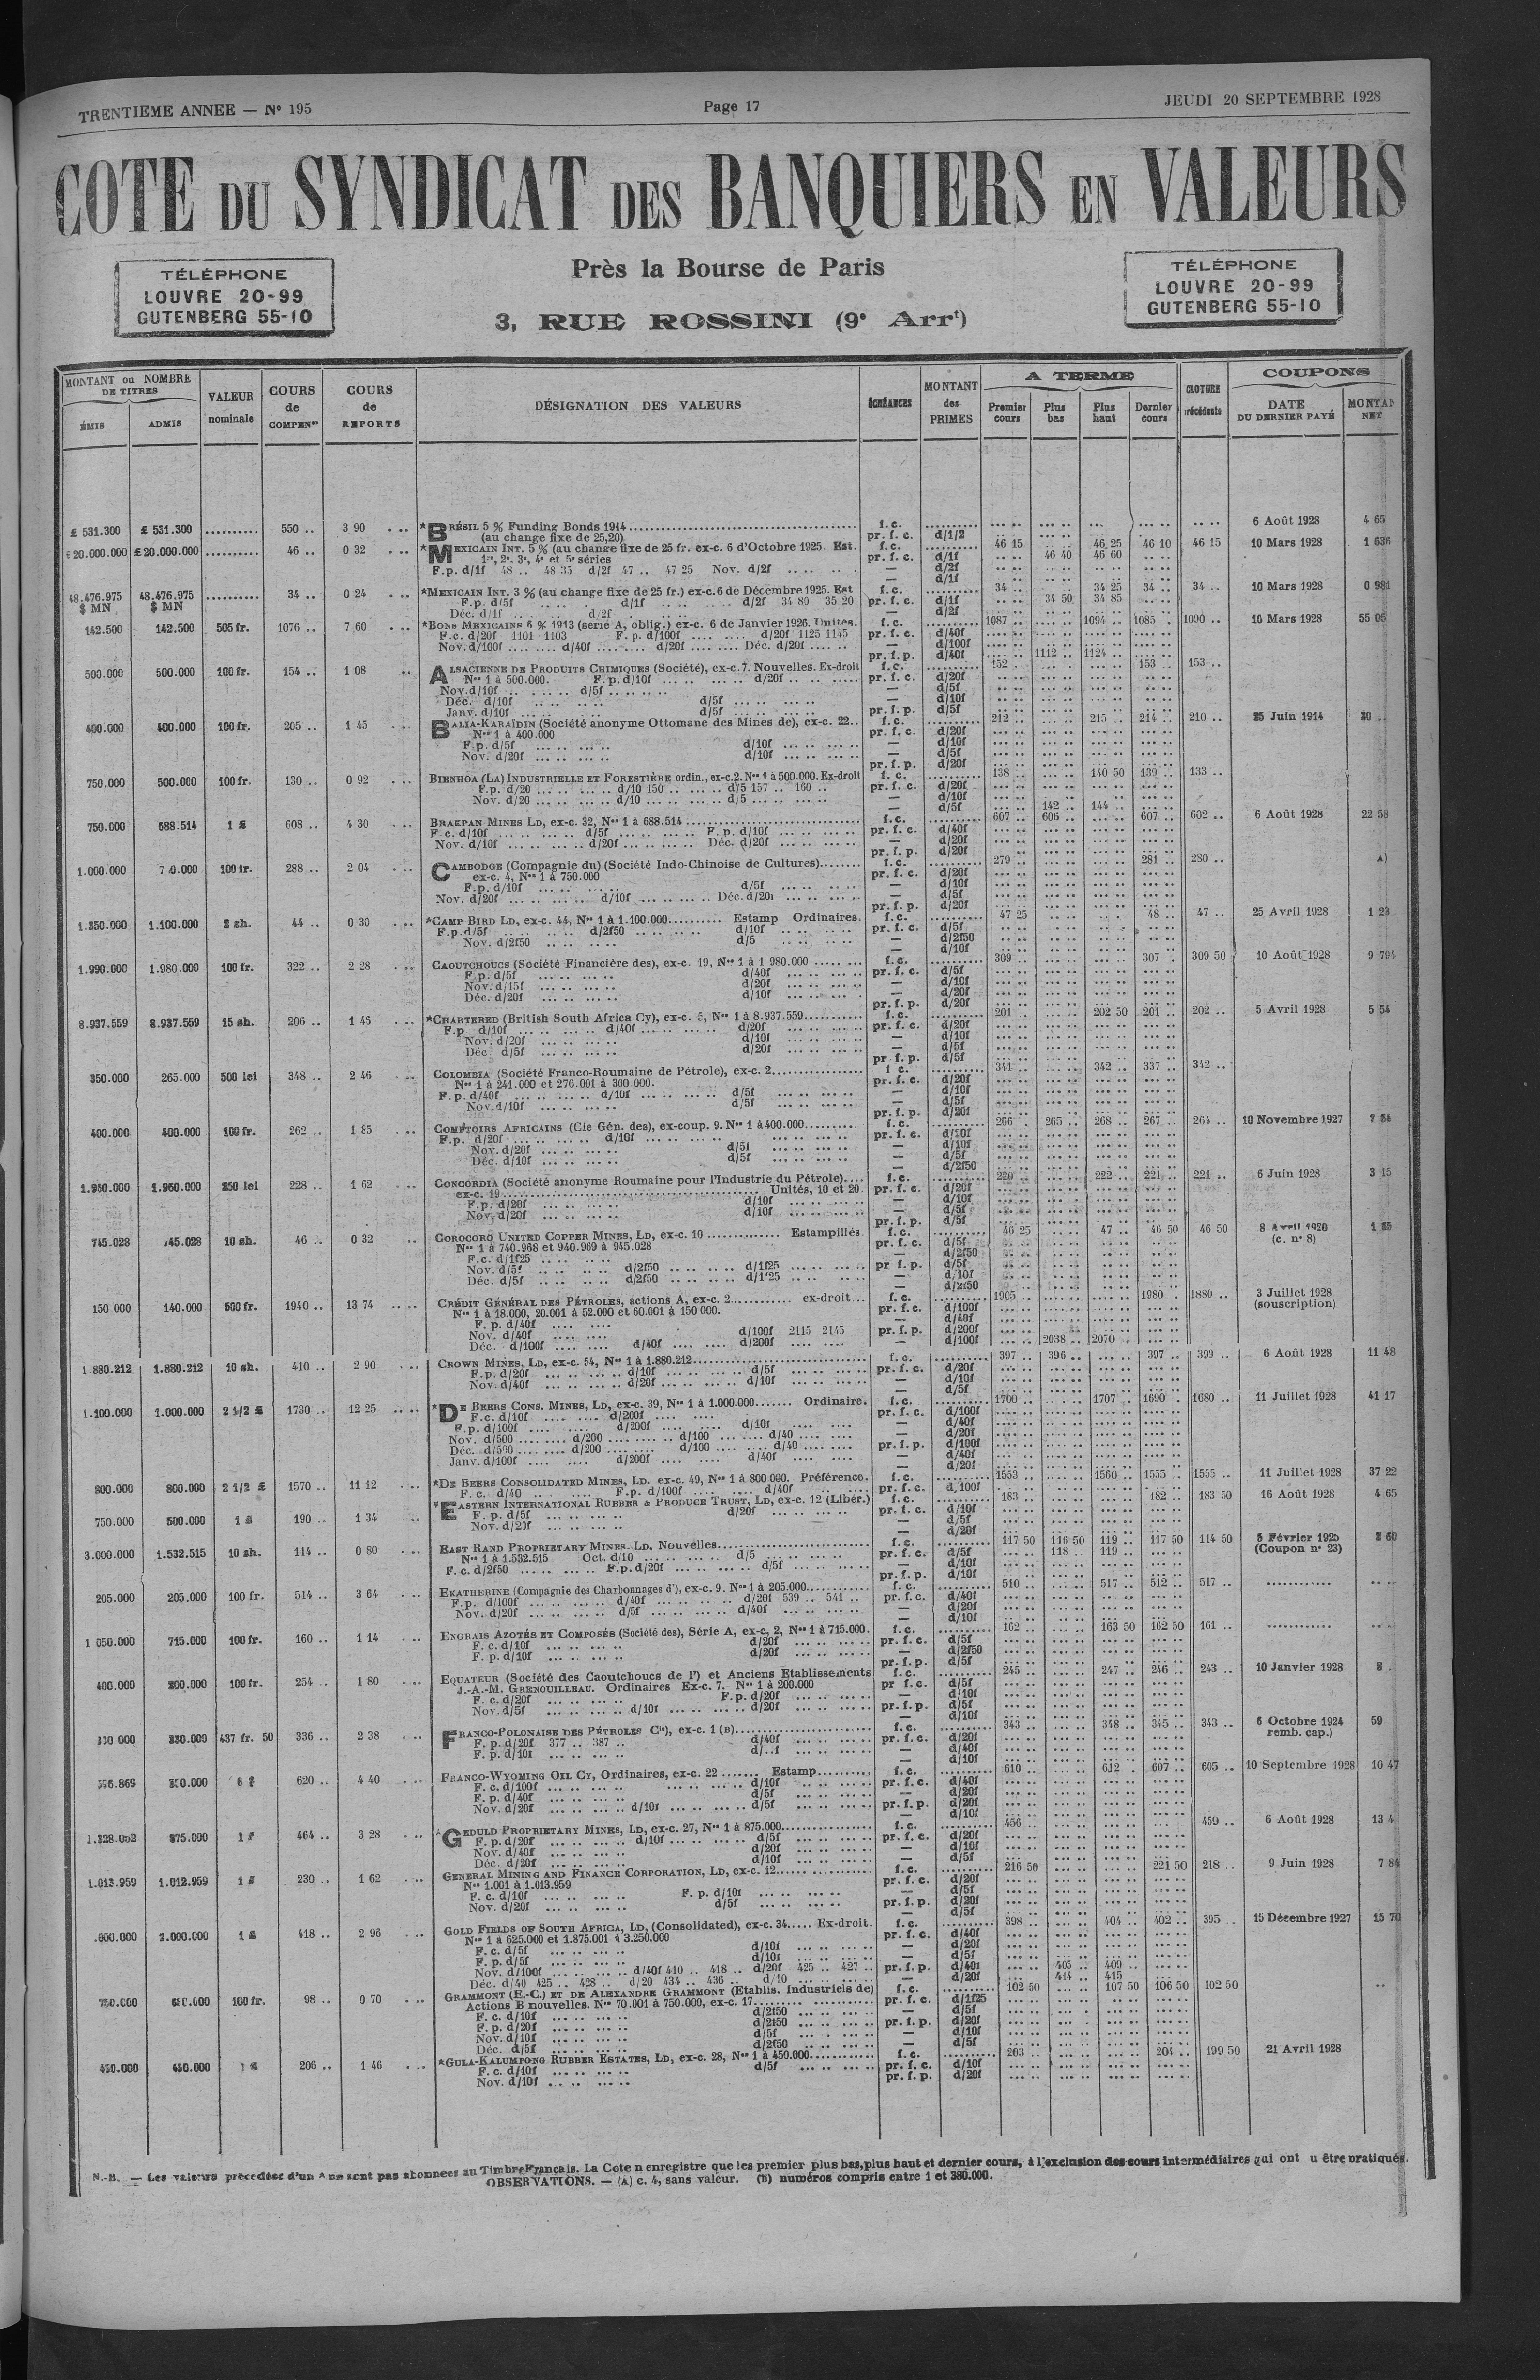 TRENTIEME ANNEE — N° 195
Page 17
JEUDI 20 SEPTEMBRE 1928
COTE DU SYNDICAT DES BANQUIERS EN VALEURS
Près la Bourse de Paris
3, RUE ROSSINI (9e Arrt)
TÉLÉPHONE
LOUVRE 20-99
GUTENBERG 55-10
TÉLÉPHONE
LOUVRE 20-99
GUTENBERG 55-10
MONTANT ou NOMBRE DE TITRES
ÉMIS
ADMIS
VALEUR nominale
COURS de COMPENon
COURS de REPORTS
DÉSIGNATION DES VALEURS
ÉCHÉANCES
MONTANT des PRIMES
A TERME
Premier cours
Plus bas
Plus haut
Dernier cours
CLOTURE précédente
COUPONS
DATE DU DERNIER PAYÉ
MONTAN NET
£ 531.300 £ 531.300 .......... 550 .. 3 90 *BRÉSIL 5 % Funding Bonds 1914 f.c. 6 Août 1928 4 65
(au change fixe de 25,20) pr. f. c. d/1/2
£ 20.000.000 £ 20.000.000 .......... 46 .. 0 32 *MEXICAIN INT. 5 % (au change fixe de 25 fr. ex-c. 6 d'Octobre 1925. Est. f.c. 46 15 46 25 46 10 46 15 10 Mars 1928 1 636
1re, 2e, 3e, 4e et 5e séries pr. f. c. d/1f 46 40 46 60
F.p. d/1f 48 .. 48 35 d/2f 47 .. 47 25 Nov. d/2f — d/2f
— d/1f
48.476.975 $ MN 48.476.975 $ MN .......... 34 .. 0 24 *MEXICAIN INT. 3 % (au change fixe de 25 fr.) ex-c. 6 de Décembre 1925. Est f.c. 34 .. 34 25 34 .. 34 .. 10 Mars 1928 0 981
F.p. d/5f d/1f d/2f 34 80 35 20 pr. f. c. d/1f 34 50 34 85
Déc. d/1f d/2f — d/2f
142.500 142.500 505 fr. 1076 .. 7 60 *BONS MEXICAINS 6 % 1913 (série A, oblig.) ex-c. 6 de Janvier 1926. Unités. f.c. 1087 .. 1094 .. 1085 .. 1090 .. 10 Mars 1928 55 05
F.c. d/20f 1101 1103 F. p. d/100f d/20f 1125 1145 pr. f. c. d/40f
Nov. d/100f d/40f d/20f Déc. d/20f — d/100f
pr. f. p. d/40f 1112 .. 1124 ..
500.000 500.000 100 fr. 154 .. 1 08 ALSACIENNE DE PRODUITS CHIMIQUES (Société), ex-c. 7. Nouvelles. Ex-droit f.c. 152 .. 153 .. 153 ..
Nos 1 à 500.000. F.p. d/10f d/20f pr. f. c. d/20f
Nov. d/10f d/5f — d/5f
Déc. d/10f d/5f — d/10f
Janv. d/10f d/5f pr. f. p. d/5f
400.000 400.000 100 fr. 205 .. 1 45 BALIA-KARAÏDIN (Société anonyme Ottomane des Mines de), ex-c. 22.. f.c. 212 .. 215 .. 214 .. 210 .. 25 Juin 1914 30 ..
Nos 1 à 400.000 pr. f. c. d/20f
F.p. d/5f d/10f — d/10f
Nov. d/20f d/10f — d/5f
pr. f. p. d/20f
750.000 500.000 100 fr. 130 .. 0 92 BIENHOA (LA) INDUSTRIELLE ET FORESTIÈRE ordin., ex-c. 2. Nos 1 à 500.000. Ex-droit f. c. 138 .. 140 50 139 .. 133 ..
F.p. d/20 d/10 150 d/5 157 .. 160 .. pr. f. c. d/20f
Nov. d/20 d/10 d/5 — d/10f
— d/5f 142 .. 144 ..
750.000 688.514 1 £ 608 .. 4 30 BRAKPAN MINES LD, ex-c. 32, Nos 1 à 688.514 f.c. 607 .. 606 .. 607 .. 602 .. 6 Août 1928 22 58
F.c. d/10f d/5f F. p. d/10f pr. f. c. d/40f
Nov. d/10f d/20f Déc. d/20f — d/20f
pr. f. p. d/20f
1.000.000 100 fr. 288 .. 2 04 CAMBODGE (Compagnie du) (Société Indo-Chinoise de Cultures) f.c. 279 .. 281 .. 280 .. A)
ex-c. 4, Nos 1 à 750.000 pr. f. c. d/20f
F.p. d/10f d/5f — d/10f
Nov. d/20f d/10f Déc. d/20f — d/5f
pr. f. p. d/20f
1.350.000 1.100.000 2 sh. 44 .. 0 30 *CAMP BIRD LD, ex-c. 44, Nos 1 à 1.100.000 Estamp Ordinaires. f.c. 47 25 48 .. 47 .. 25 Avril 1928 1 23
F.p. d/5f d/2f50 d/10f pr. f. c. d/5f
Nov. d/2f50 d/5 — d/2f50
— d/10f
1.990.000 1.980.000 100 fr. 322 .. 2 28 CAOUTCHOUCS (Société Financière des), ex-c. 19, Nos 1 à 1 980.000 f.c. 309 .. 307 .. 309 50 10 Août 1928 9 794
F.p. d/5f d/40f pr. f. c. d/5f
Nov. d/15f d/20f — d/10f
Déc. d/20f d/10f — d/20f
pr. f. p. d/20f
8.937.559 8.937.559 15 sh. 206 .. 1 45 *CHARTERED (British South Africa Cy), ex-c. 5, Nos 1 à 8.937.559 f.c. 201 .. 202 50 201 .. 202 .. 5 Avril 1928 5 54
F.p. d/10f d/40f d/20f pr. f. c. d/20f
Nov. d/20f d/10f — d/10f
Déc. d/5f d/20f — d/5f
pr f. p. d/5f
350.000 265.000 500 lei 348 .. 2 46 COLOMBIA (Société Franco-Roumaine de Pétrole), ex-c. 2 f c. 341 .. 342 .. 337 .. 342 ..
Nos 1 à 241.000 et 276.001 à 300.000. pr. f. c. d/20f
F.p. d/40f d/10f d/5f — d/10f
Nov. d/10f d/5f — d/5f
pr. f. p. d/20f
400.000 400.000 100 fr. 262 .. 1 85 COMPTOIRS AFRICAINS (Cie Gén. des), ex-coup. 9. Nos 1 à 400.000 f.c. 266 .. 265 .. 268 .. 267 .. 264 .. 10 Novembre 1927
F.p. d/20f d/10f pr. f. c. d/10f
Nov. d/20f d/5f — d/10f
Déc. d/10f d/5f — d/5f
— d/2f50
1.950.000 1.950.000 250 lei 228 .. 1 62 CONCORDIA (Société anonyme Roumaine pour l'Industrie du Pétrole) f.c. 220 .. 222 .. 221 .. 221 .. 6 Juin 1928 3 15
ex-c. 19 Unités, 10 et 20. pr. f. c. d/20f
F.p. d/20f d/10f — d/10f
Nov. d/20f d/10f — d/5f
pr. f. p. d/5f
745.028 745.028 10 sh. 46 .. 0 32 COROCORO UNITED COPPER MINES, LD, ex-c. 10 Estampillés. f.c. 46 25 47 .. 46 50 46 50 8 Avril 1920
Nos 1 à 740.968 et 940.969 à 945.028 pr. f. c. d/5f (c. n° 8)
F.c. d/1f25 — d/2f50
Nov. d/5f d/2f50 d/1f25 pr f. p. d/5f
Déc. d/5f d/2f50 d/1f25 — d/10f
— d/2f50
150 000 140.000 500 fr. 1940 .. 13 74 CRÉDIT GÉNÉRAL DES PÉTROLES, actions A, ex-c. 2 ex-droit f. c. 1905 .. 1980 . 1880 .. 3 Juillet 1928
Nos 1 à 18.000, 20.001 à 52.000 et 60.001 à 150 000. pr. f. c. d/100f (souscription)
F. p. d/40f — d/40f
Nov. d/40f d/100f 2115 2145 pr. f. p. d/200f
Déc. d/100f d/40f d/200f — d/100f 2038 .. 2070 .
1 880.212 1.880.212 10 sh. 410 .. 2 90 CROWN MINES, LD, ex-c. 54, Nos 1 à 1.880.212 f. c. 397 .. 396 .. 397 .. 399 .. 6 Août 1928 11 48
F.p. d/20f d/10f d/5f pr. f. c. d/20f
Nov. d/40f d/20f d/10f — d/10f
— d/5f
1.100.000 1.000.000 2 1/2 £ 1730 .. 12 25 *DE BEERS CONS. MINES, LD, ex-c. 39, Nos 1 à 1.000.000 Ordinaire. f. c. 1700 .. 1707 .. 1690 . 1680 .. 11 Juillet 1928 41 17
F.c. d/10f d/200f pr. f. c. d/100f
F.p. d/100f d/200f d/10f — d/40f
Nov. d/500 d/200 d/100 d/40 — d/20f
Déc. d/500 d/200 d/100 d/40 pr. f. p. d/100f
Janv. d/100f d/200f d/40f — d/40f
— d/20f
800.000 800.000 2 1/2 £ 1570 .. 11 12 *DE BEERS CONSOLIDATED MINES, LD. ex-c. 49, Nos 1 à 800.000. Préférence. f. c. 1553 .. 1560 .. 1555 .. 1555 .. 11 Juillet 1928 37 22
F. c. d/40 F.p. d/100f d/40f pr. f. c. d/100f
750.000 500.000 1 £ 190 .. 1 34 *EASTERN INTERNATIONAL RUBBER & PRODUCE TRUST, LD, ex-c. 12 (Libér.) f. c. 183 .. 182 .. 183 50 16 Août 1928 4 65
F. p. d/5f d/20f pr. f. c. d/10f
Nov. d/20f — d/5f
— d/20f
3.000.000 1.532.515 10 sh. 114 .. 0 80 EAST RAND PROPRIETARY MINES. LD, Nouvelles f. c. 117 50 116 50 119 .. 117 50 114 50 5 Février 1925
Nos 1 à 1.532.515 Oct. d/10 d/5 pr. f. c. d/5f 118 .. 119 .. (Coupon n° 23)
F. c. d/2f50 F.p. d/20f d/5f — d/10f
pr. f. p. d/10f
205.000 205.000 100 fr. 514 .. 3 64 EKATHERINE (Compagnie des Charbonnages d'), ex-c. 9. Nos 1 à 205.000 f. c. 510 .. 517 .. 512 .. 517 ..
F.p. d/100f d/40f d/20f 539 .. 541 .. pr. f.c. d/40f
Nov. d/20f d/5f d/40f — d/20f
— d/10f
1 050.000 715.000 100 fr. 160 .. 1 14 ENGRAIS AZOTÉS ET COMPOSÉS (Société des), Série A, ex-c, 2, Nos 1 à 715.000. f. c. 162 .. 163 50 162 50 161 ..
F. c. d/10f d/20f pr. f. c. d/5f
F. p. d/10f d/20f — d/2f50
pr. f. p. d/5f
400.000 200.000 100 fr. 254 .. 1 80 EQUATEUR (Société des Caoutchoucs de l') et Anciens Etablissements f. c. 245 .. 247 .. 246 .. 243 .. 10 Janvier 1928 8 .
J.-A.-M. GRENOUILLEAU. Ordinaires Ex-c. 7. Nos 1 à 200.000 pr f. c. d/5f
F. c. d/20f F.p. d/20f — d/10f
Nov. d/5f d/10f d/20f pr. f. p. d/5f
— d/10f
330.000 437 fr. 50 336 .. 2 38 FRANCO-POLONAISE DES PÉTROLES Cie), ex-c. 1 (B) f. c. 343 .. 348 .. 345 .. 343 .. 6 Octobre 1924 59
F. p. d/20f 377 .. 387 .. d/40f pr. f. c. d/20f remb. cap.)
F. p. d/10f — d/40f
— d/10f
350.000 620 .. 4 40 FRANCO-WYOMING OIL CY, Ordinaires, ex-c. 22 Estamp f. c. 610 .. 612 . 607 .. 605 .. 10 Septembre 1928 10 47
F. c. d/100f d/10f pr. f. c. d/40f
F. p. d/40f d/5f — d/20f
Nov. d/20f d/10f d/5f pr. f. p. d/20f
— d/10f
875.000 464 .. 3 28 GEDULD PROPRIETARY MINES, LD, ex-c. 27, Nos 1 à 875.000 f. c. 456 .. 459 .. 6 Août 1928 13 4
F. p. d/20f d/10f d/5f pr. f. c. d/20f
Nov. d/40f d/20f — d/10f
Déc. d/20f d/10f — d/5f
1.013.959 1.012.959 1 £ 230 .. 1 62 GENERAL MINING AND FINANCE CORPORATION, LD, ex-c. 12 f. c. 216 50 221 50 218 .. 9 Juin 1928 7 84
Nos 1.001 à 1.013.959 pr. f. c. d/20f
F. c. d/10f F. p. d/10f — d/5f
Nov. d/20f d/5f pr. f. p. d/20f
— d/5f
.000.000 1 £ 418 .. 2 96 GOLD FIELDS OF SOUTH AFRICA, LD, (Consolidated), ex-c. 34 Ex-droit. f. c. 398 .. 404 .. 402 .. 395 .. 15 Décembre 1927 15 70
Nos 1 à 625.000 et 1.875.001 à 3.250.000 pr. f. c. d/40f
F. c. d/5f d/10f — d/20f
F. p. d/5f d/10f — d/5f
Nov. d/100f d/40f 410 .. 418 .. d/20f 425 .. 427 .. pr. f. p. d/40f 405 .. 409 ..
Déc. d/40 425 .. 428 .. d/20 434 .. 436 .. d/10 — d/20f 414 .. 415
750.000 100 fr. 98 .. 0 70 GRAMMONT (E.-C.) ET DE ALEXANDRE GRAMMONT (Etablis. Industriels de) f. c. 102 50 107 50 106 50 102 50
Actions B nouvelles. Nos 70.001 à 750.000, ex-c. 17 pr. f. c. d/1f25
F. c. d/10f d/2f50 — d/5f
F. p. d/20f d/2f50 pr. f. p. d/20f
Nov. d/10f d/5f — d/10f
Déc. d/5f d/2f50 — d/5f
450.000 450.000 1 £ 206 .. 1 46 *GULA-KALUMPONG RUBBER ESTATES, LD, ex-c. 28, Nos 1 à 450.000 f. c. 203 .. 204 .. 199 50 21 Avril 1928
F. c. d/10f d/5f pr. f. c. d/10f
Nov. d/10f pr. f. p. d/20f
N.-B. — Les valeurs précédées d'un * ne sont pas abonnées au Timbre Français. La Cote n enregistre que les premier plus bas, plus haut et dernier cours, à l'exclusion des cours intermédiaires qui ont u être pratiqués.
OBSERVATIONS. — (A) c. 4, sans valeur. (B) numéros compris entre 1 et 380.000.